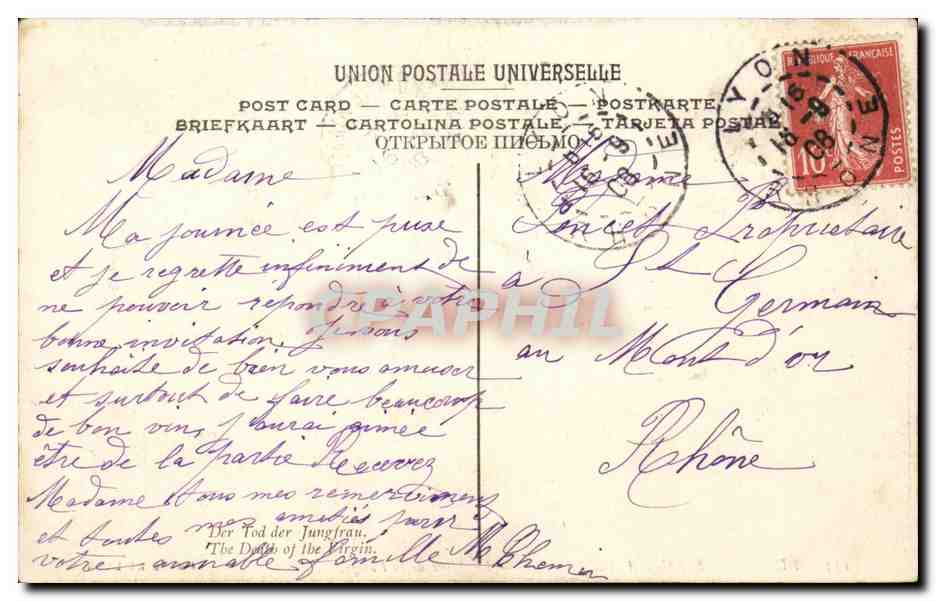 UNION POSTALE UNIVERSELLE
POST CARD — CARTE POSTALE — POSTKARTE
BRIEFKAART — CARTOLINA POSTALE — TARJETA POSTAL
ОТКРЫТОЕ ПИСЬМО
REPUBLIQUE FRANÇAISE
10
POSTES
LYON
RHONE
Madame
Ma journée est prise
et je regrette infiniment de
ne pouvoir répondre à votre
bonne invitation. Je vous
souhaite de bien vous amuser
et surtout de faire beaucoup
de bon vin, j'aurai aimée
être de la partie Recevez
Madame tous mes remerciments
et toutes mes amitiés pour
votre aimable famille M
Madame
Propriétaire
à St Germain
au Mont d'or
Rhône
Der Tod der Jungfrau.
The Death of the Virgin.
CPAPHIL